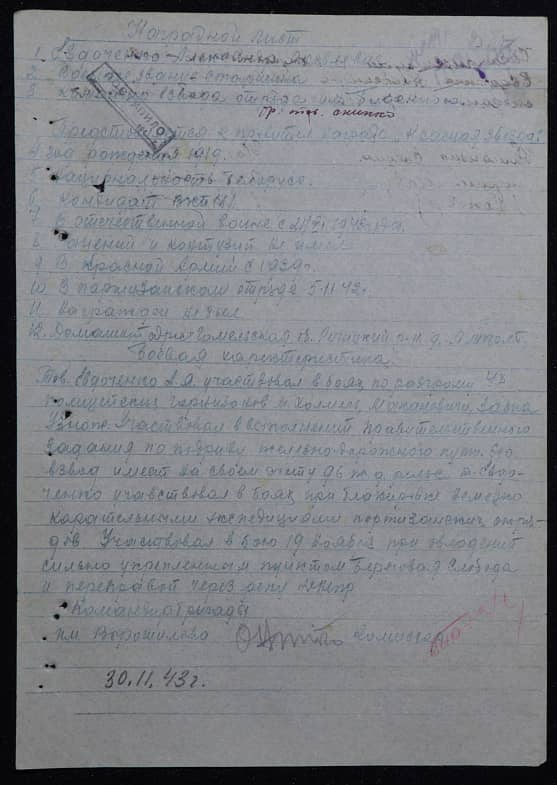 Наградной лист
1. Евдоченко
2. Воен. звание старшина
3. Командир взвода отряда им. Буденного
Бр. тов. Силича
Представляется к правител. награде "Красная звезда"
4 год рождения 1919г.
5. Национальность белорус.
6. Кандидат ВКП(б)
7. В отечественной войне с 1941г.
8. Ранений и контузий не имел
9 В Красной Армии с 1939г.
10 В партизанском отряде 5.11.42г.
11. Награжден не был
12. Домашний адр. Гомельская об. Речицкий р-н д.
Боевая характеристика
Тов. Евдоченко А.Я. участвовал в боях по разгрому
полицейских гарнизонов м. Холмечь,
Участвовал в выполнении правительственного
задания по подрыву железно-дорожного пути. Его
взвод имеет на своем счету 96 ж.д. рельс. т. Евдо-
ченко учавствовал в боях при блокировке немецко
карательными экспедициями партизанских отря-
дов Участвовал в бою 19 ноября при овладении
сильно укрепленным пунктом Береговая Слобода
и переправой через реку Днепр
Командир бригады
им Ворошилова Комиссар
30.11.43г.